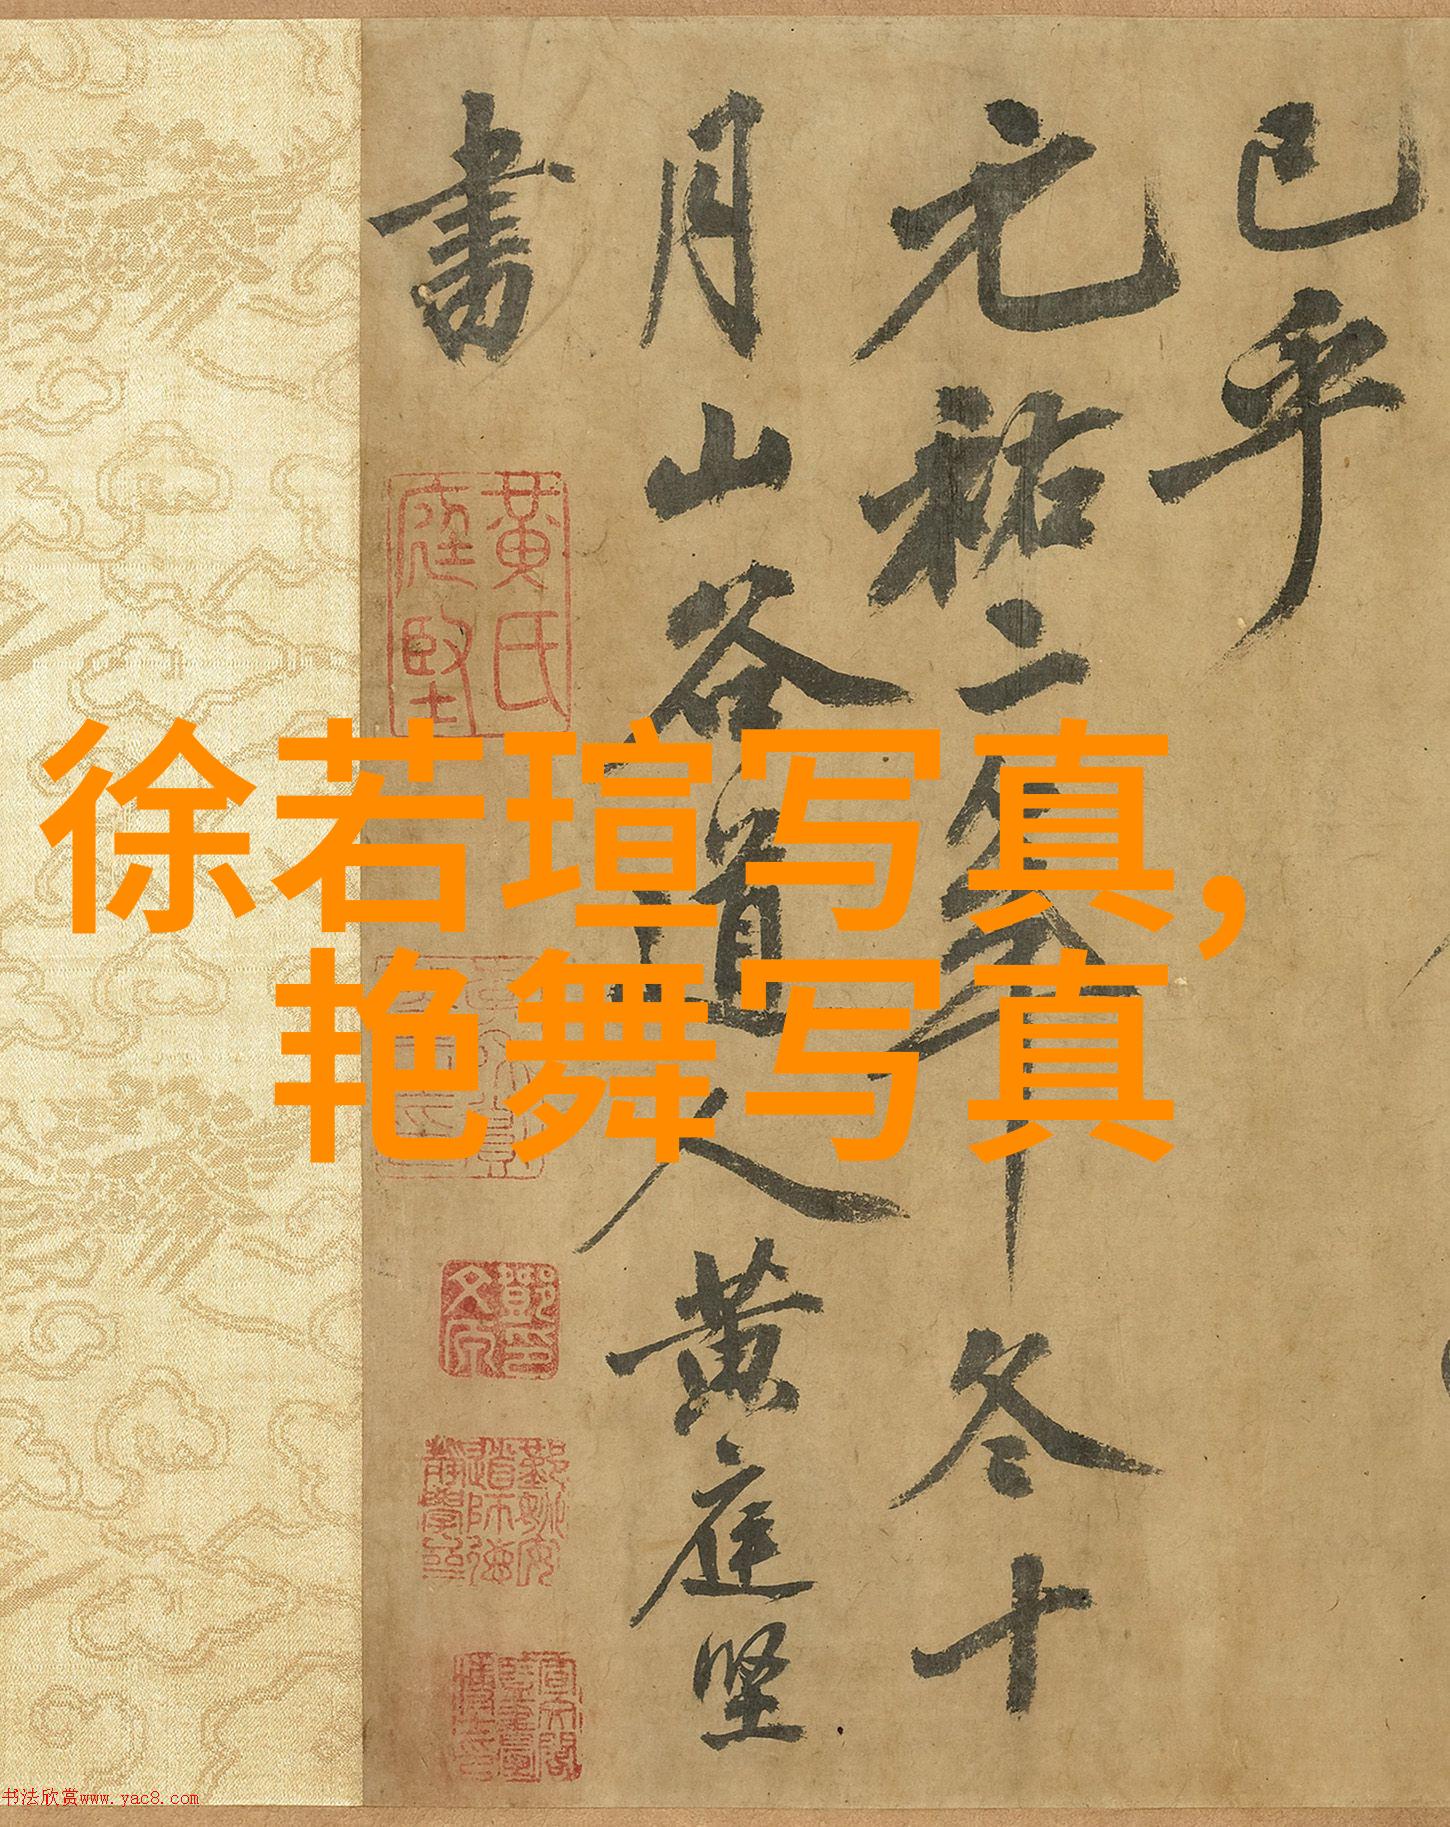 已乎
元祐二年冬十
月山谷道人黄庭坚
書
黄氏
庭堅
徐若瑄写真,
艳舞写真
书法欣赏www.yac8.com